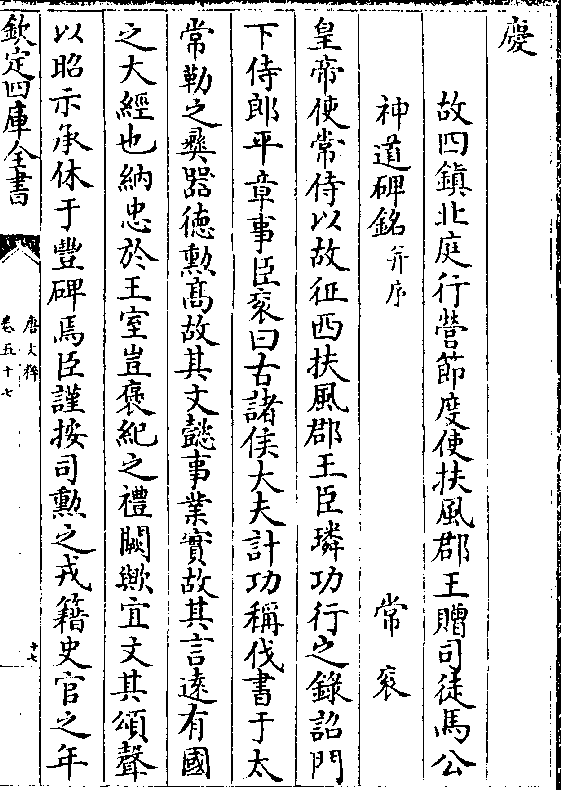 慶
故四鎮北庭行營節度使扶風郡王贈司徒馬公
神道碑銘并序 常衮
皇帝使常侍以故征西扶風郡王臣璘功行之錄詔門
下侍郎平章事臣衮曰古諸侯大夫計功稱伐書于太
常勒之彝器德勳高故其文懿事業實故其言遠有國
之大經也納忠於王室豈褒紀之禮闕歟宜文其頌聲
以昭示承休于豐碑焉臣謹按司勳之戎籍史官之年
欽定四庫全書
唐文粹
卷五十七
十七